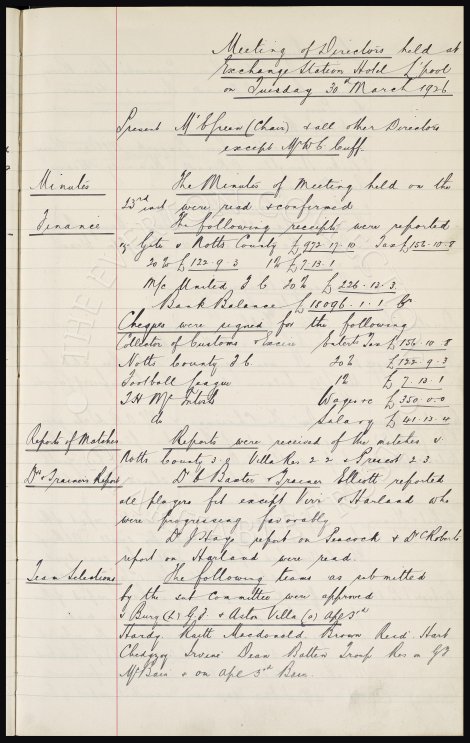 Meeting of Directors held at
Exchange Station Hotel L'pool
on Tuesday 30th March 1926
Present Mr E Green (Chair) & all other Directors
except Mr W C Cuff.
Minutes The Minutes of Meeting held on the
23rd inst were read & confirmed
Finance The following receipts were reported
Gate v Notts County £972-17-10 Tax £156-10-8
20% £122-9-3 1% £7-13-1
M/c United F C 20% £226-13-3
Bank Balance £18096-1-1 Cr
Cheques were signed for the following
Collector of Customs & Excise Entert. Tax £156-10-8
Notts County F.C. 20% £122-9-3
Football League 1% £7-13-1
T.H. McIntosh Wages &c £350-0-0
do Salary £41-13-4
Reports of Matches Reports were received of the matches v.
Notts County 3-0 Villa Res 2-2 & Prescot 2-3
Drs & Trainers Report Dr Baxter & Trainer Elliott reported
all players fit except Virr & Harland who
were progressing favorably
Dr J Hay's report on Peacock & Dr C Roberts
report on Harland were read.
Team Selections The following teams as submitted
by the sub Committee were approved
v Bury (h) G.F. & Aston Villa (a) Apl 3rd
Hardy Raitt Macdonald Brown Reid Hart
Chedgzoy Irvine Dean Batten Troup Res on GF
McBain & on Apl 3rd Bain.